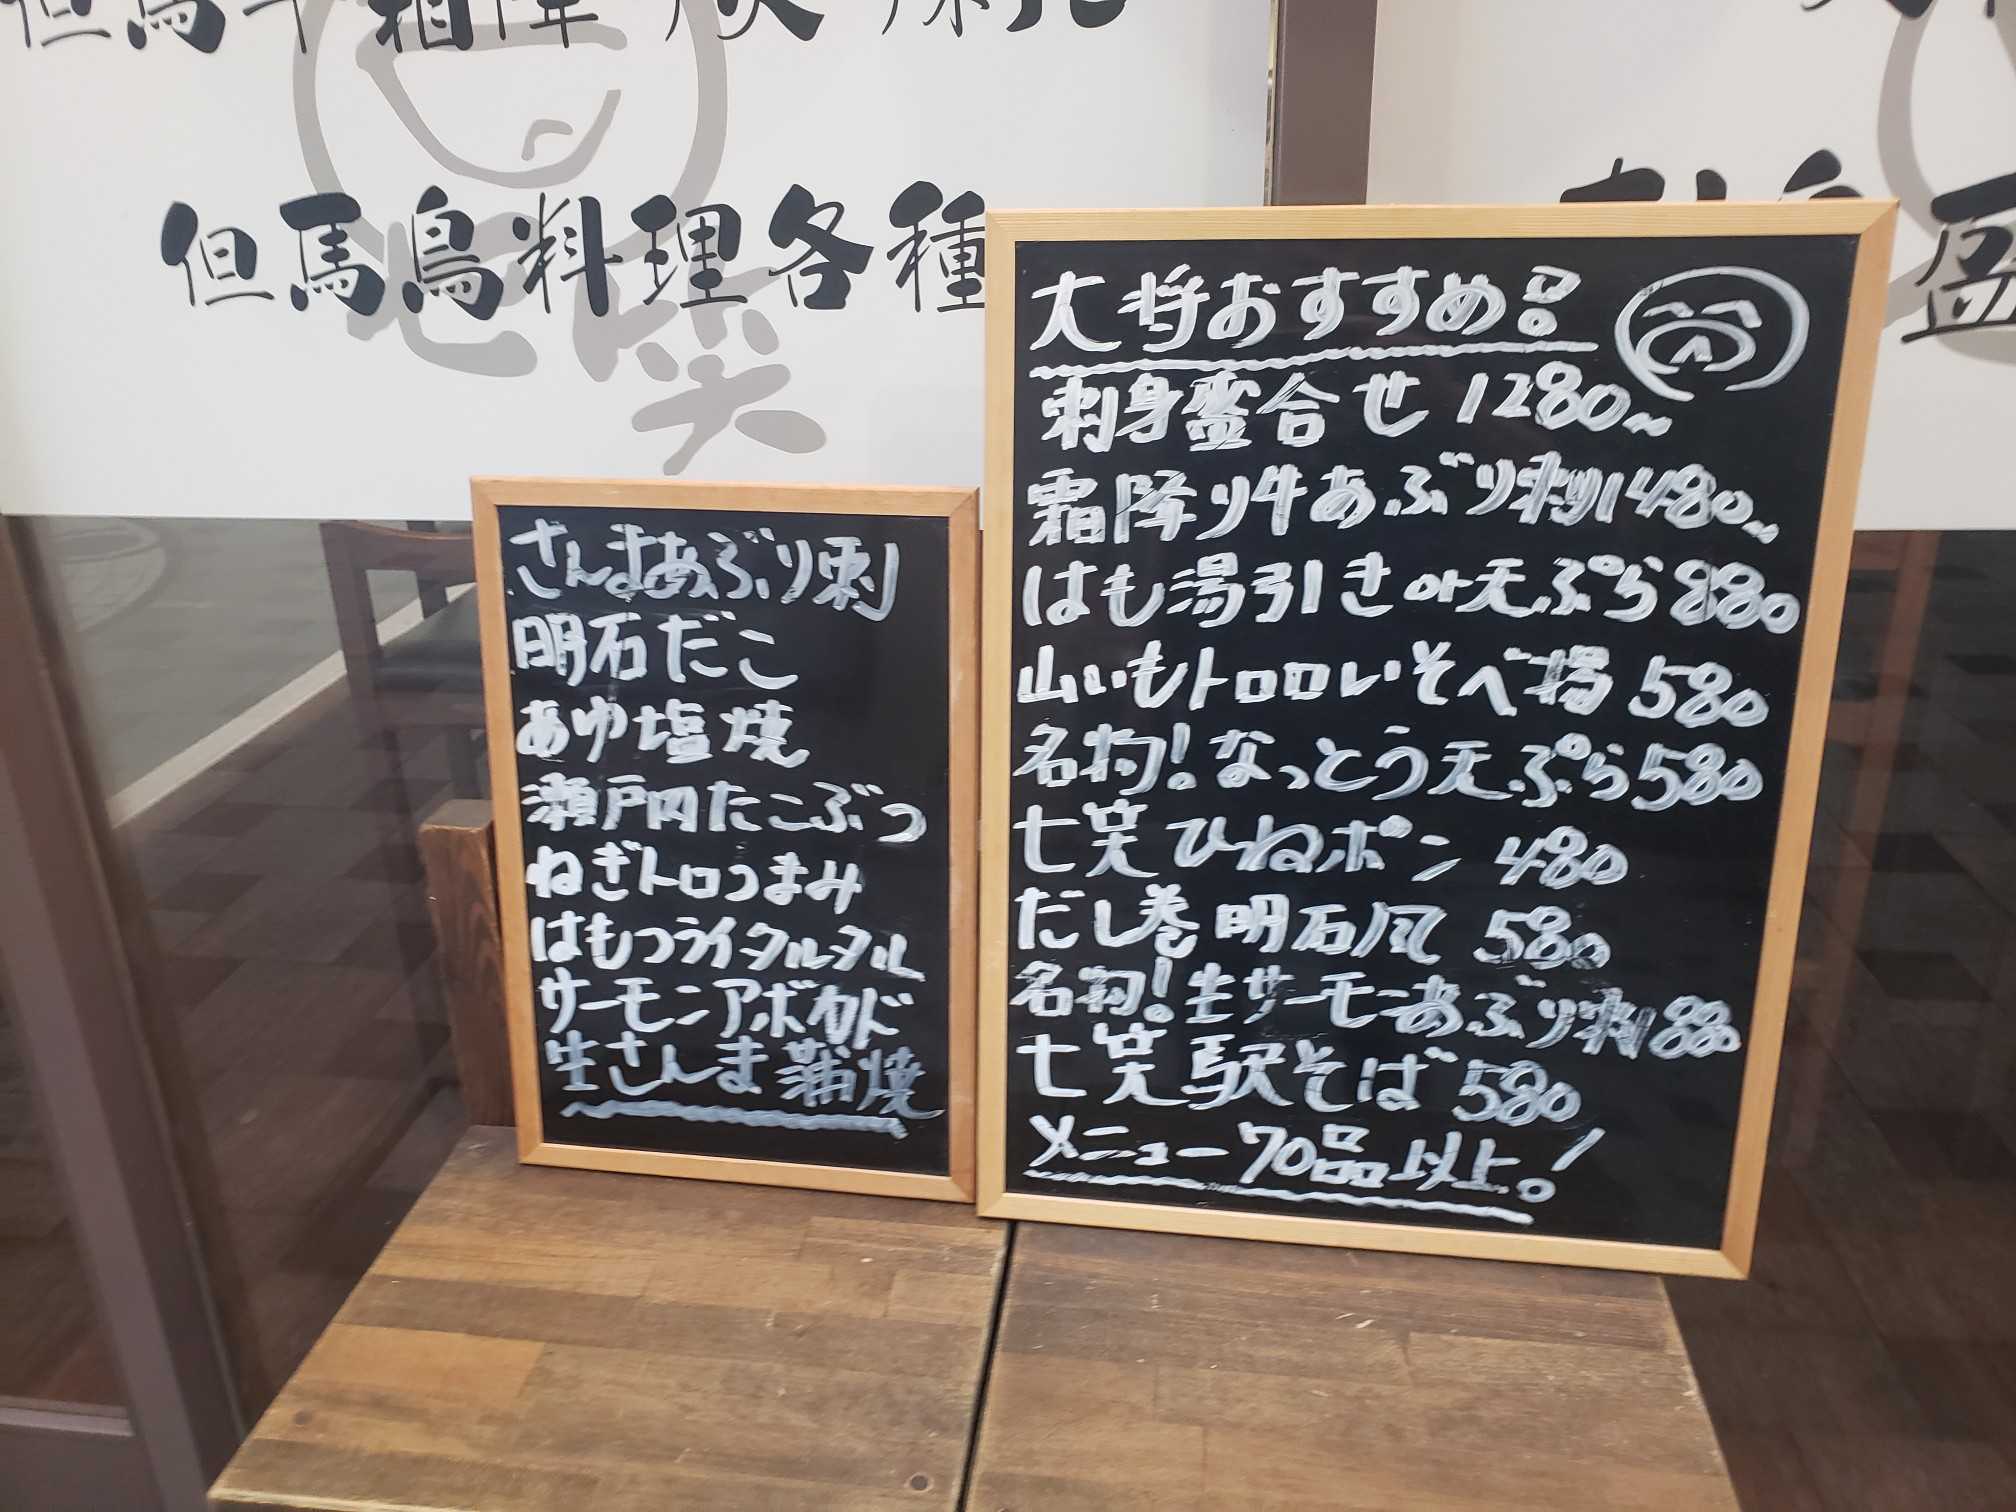 但馬鳥料理各種
七笑
さんまあぶり刺
明石だこ
あゆ塩焼
瀬戸内たこぶつ
ねぎトロつまみ
はもフライタルタル
サーモンアボカド
生さんま蒲焼
大将おすすめ品
刺身盛合せ 1280~
霜降り牛あぶり刺 1480~
はも湯引きor天ぷら 880
山いもトロロいそべ揚 580
名物!なっとう天ぷら 580
七笑ひねポン 480
だし巻明石風 580
名物!生サーモンあぶり刺 880
七笑駅そば 580
メニュー70品以上。!